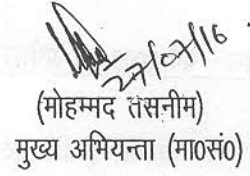 27/07/16
(मोहम्मद तसनीम)
मुख्य अभियन्ता (मा0सं0)